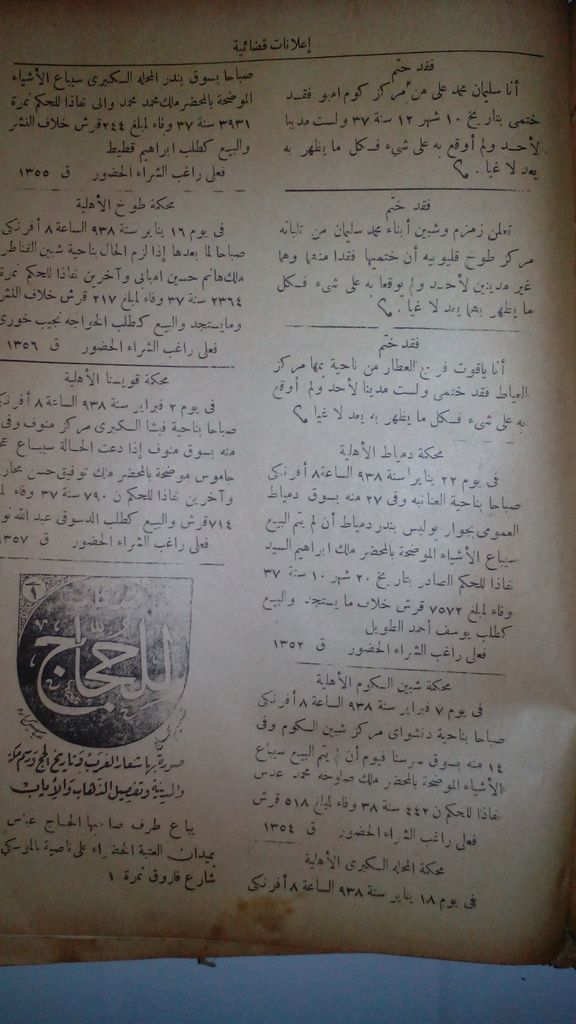 إعلانات قضائية
فقد ختم
أنا سليمان محمد على من مركز كوم امبو فقد
ختمى بتاريخ ١٠ شهر ١٢ سنة ٣٧ ولست مدينا
لأحد ولم أوقع به على شىء فكل ما يظهر به
يعد لاغيا . ٢
فقد ختم
تعلن زمزم وشبين أبناء محمد سليمان من
مركز طوخ قليوبيه أن ختميها فقدا منهما وهما
غير مدينين لأحد ولم يوقعا به على شىء فكل
ما يظهر بهما يعد لاغيا . ٢
فقد ختم
أنا ياقوت فرج العطار من ناحية بمها مركز
العياط فقد ختمى ولست مدينا لأحد ولم أوقع
به على شىء فكل ما يظهر به يعد لاغيا ٢
محكمة دمياط الأهلية
فى يوم ٢٢ يناير سنة ٩٣٨ الساعة ٨ أفرنكى
صباحا بناحية العنانيه وفى ٢٧ منه بسوق دمياط
العمومى بجوار بوليس بندر دمياط أن لم يتم البيع
سيباع الأشياء الموضحة بالمحضر ملك ابراهيم السيد
نفاذا للحكم الصادر بتاريخ ٢٠ شهر ١٠ سنة ٣٧
وفاء لمبلغ ٧٥٧٢ قرش خلاف ما يستجد والبيع
كطلب يوسف أحمد الطويل
فعلى راغب الشراء الحضور ق ١٣٥٢
محكمة شبين الكوم الأهلية
فى يوم ٧ فبراير سنة ٩٣٨ الساعة ٨ أفرنكى
صباحا بناحية دنشواى مركز شبين الكوم وفى
١٤ منه بسوق سرسنا فيوم أن لم يتم البيع سيباع
الأشياء الموضحة بالمحضر ملك صلوحه محمد عدس
نفاذا للحكم ن ٤٤٢ سنة ٣٨ وفاء لمبلغ ٥١٨ قرش
فعلى راغب الشراء الحضور ق ١٣٥٤
محكمة المحله الكبرى الأهلية
فى يوم ١٨ يناير سنة ٩٣٨ الساعة ٨ أفرنكى
صباحا بسوق بندر المحله الكبرى سيباع الأشياء
الموضحة بالمحضر ملك محمد محمد والى نفاذا للحكم نمرة
٣٩٣١ سنة ٣٧ وفاء لمبلغ ٢٤٤ قرش خلاف النشر
والبيع كطلب ابراهيم قطيط
فعلى راغب الشراء الحضور ق ١٣٥٥
محكمة طوخ الأهلية
فى يوم ١٦ يناير سنة ٩٣٨ الساعة ٨ أفرنكى
صباحا لما بعدها إذا لزم الحال بناحية شبين القناطر
ملك هانم حسين امبابى وآخرين نفاذا للحكم نمرة
٢٣٦٤ سنة ٣٧ وفاء لمبلغ ٢١٧ قرش خلاف النشر
وما يستجد والبيع كطلب الخواجه نجيب خورى
فعلى راغب الشراء الحضور ق ١٣٥٦
محكمة قويسنا الأهلية
فى يوم ٢ فبراير سنة ٩٣٨ الساعة ٨ أفرنكى
صباحا بناحية فيشا الكبرى مركز منوف وفى
منه بسوق منوف إذا دعت الحالة سيباع
جاموس موضحة بالمحضر ملك توفيق حسن
وآخرين نفاذا للحكم ن ٧٩٠ سنة ٣٧ وفاء
٧١٤ قرش والبيع كطلب الدسوقى عبد الله
فعلى راغب الشراء الحضور ق ١٣٥٧
للحجاج
صورة بها شعار الغرب وتاريخ الحج
والدينة وتفصيل الذهاب والأياب
يباع طرف صاحبها الحاج عباس
بميدان العتبة الخضراء على ناصية بالموسكى
شارع فاروق نمرة ١